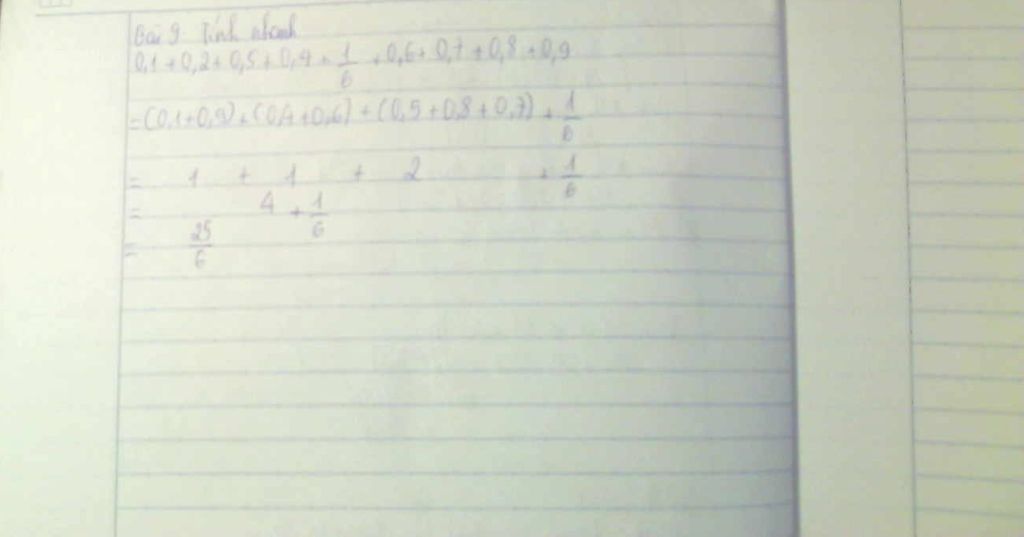 Bài 9 Tính nhanh
0,1 + 0,2 + 0,5 + 0,4 + 1/6 + 0,6 + 0,7 + 0,8 + 0,9
= (0,1 + 0,9) + (0,4 + 0,6) + (0,5 + 0,8 + 0,7) + 1/6
= 1 + 1 + 2 + 1/6
= 4 + 1/6
= 25/6